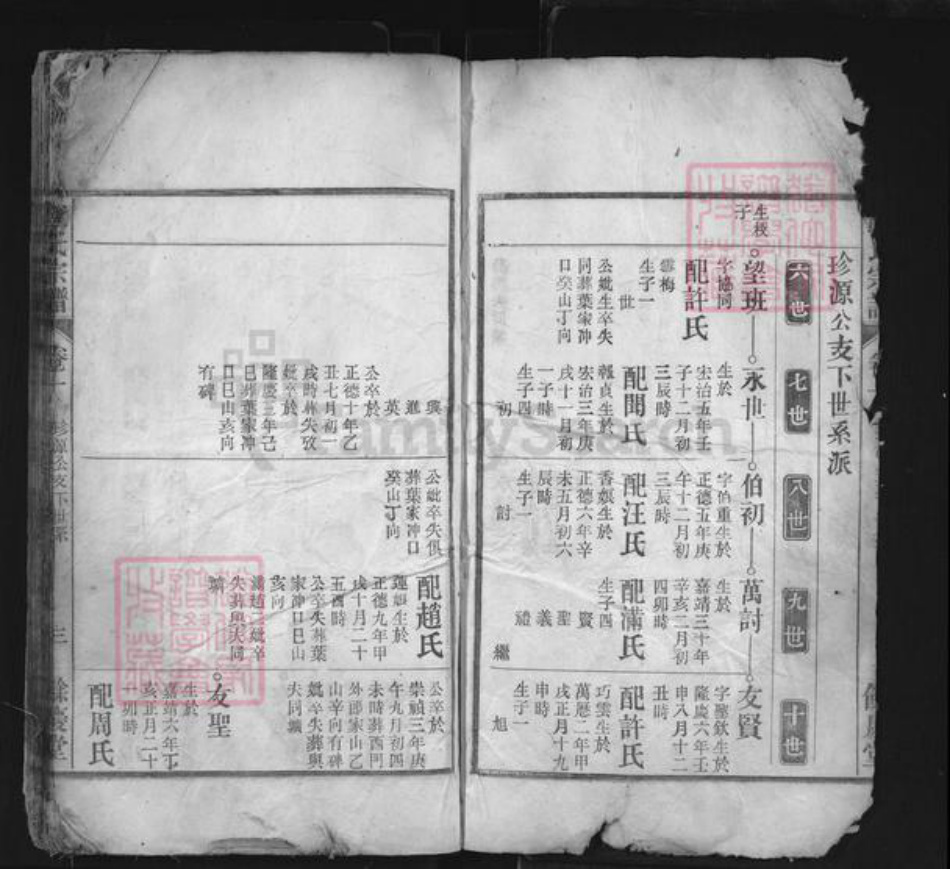 珍源公支下世系派
六世
七世
八世
九世
十世
生授
子
望班
字協同
配許氏
雪梅
生子一
世
公妣生卒失
同葬葉家冲
口癸山丁向
永世
生於
宏治五年壬
子十二月初
三辰時
配閔氏
報貞生於
宏治三年庚
戌十一月初
一子時
生子四
初
伯初
字伯重生於
正德五年庚
午十二月初
三辰時
配汪氏
香娘生於
正德六年辛
未五月初六
辰時
生子一
討
萬討
生於
嘉靖三十年
辛亥二月初
四卯時
配滿氏
生子四
賢
聖
義
禮
繼
友賢
字聖欽生於
隆慶六年壬
申八月十二
丑時
配許氏
巧雲生於
萬曆二年甲
戌正月十九
申時
生子一
旭
興
進
英
公卒於
正德十年乙
丑七月初一
戌時葬失攷
妣卒於
隆慶三年己
巳葬葉家冲
口巳山亥向
有碑
公妣卒失俱
葬葉家冲口
癸山丁向
配趙氏
蓮娘生於
正德九年甲
戌十月二十
五酉時
公卒失葬葉
家冲口巳山
亥向
滿趙二妣卒
失葬與夫同
墳
公卒於
崇禎三年庚
午九月初四
未時葬西門
外郎家山乙
山辛向有碑
妣卒失葬與
夫同墳
友聖
生於
嘉靖六年丁
亥正月二十
一卯時
配周氏
氏宗譜
卷一
珍源公支下世系
三
餘慶堂